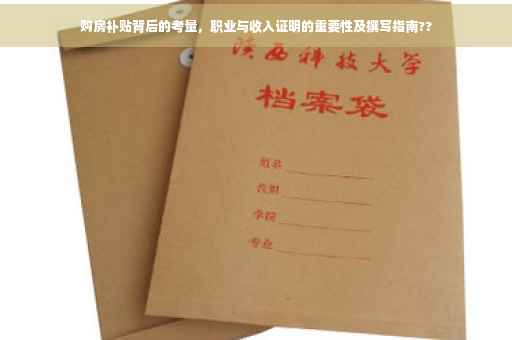 购房补贴背后的考量，职业与收入证明的重要性及撰写指南??
陕西科技大学
档案袋
姓名
学院
专业